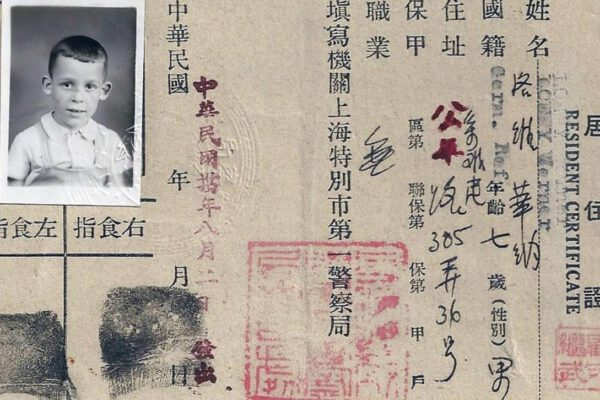 居住證
RESIDENT CERTIFICATE
Werner
姓名 洛維 華納
國籍 Germ. Ref. 年齡 七 歲 (性別) 男
住址 公平路 305弄36号
保甲 區第 聯保第 保第 甲 戶
職業 無
填寫機關上海特別市第一警察局
中華民國 年 月 日
中華民國 年八月二日發出
右食指
左食指